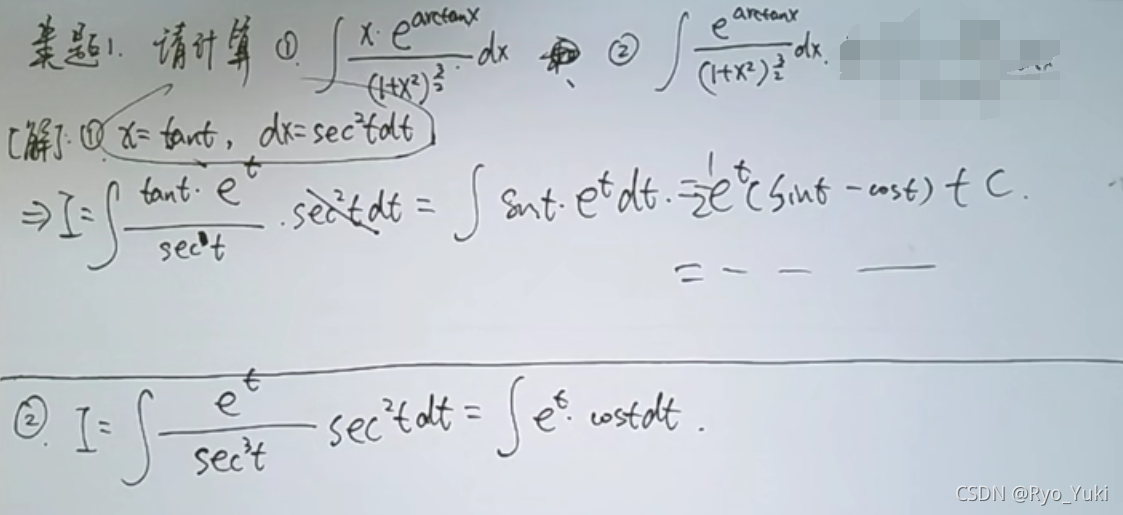 类题1. 请计算 ① ∫ x·e^{arctanx}/(1+x²)^{3/2} dx ② ∫ e^{arctanx}/(1+x²)^{3/2} dx.
[解]: ① x=tant, dx=sec²tdt
⇒ I=∫ tant·e^t/sec t · sec²tdt = ∫ sint·e^t dt. = 1/2 e^t(sint - cost) + C.
= - - —
② I=∫ e^t/sec³t sec²tdt = ∫ e^t·costdt.
CSDN @Ryo_Yuki